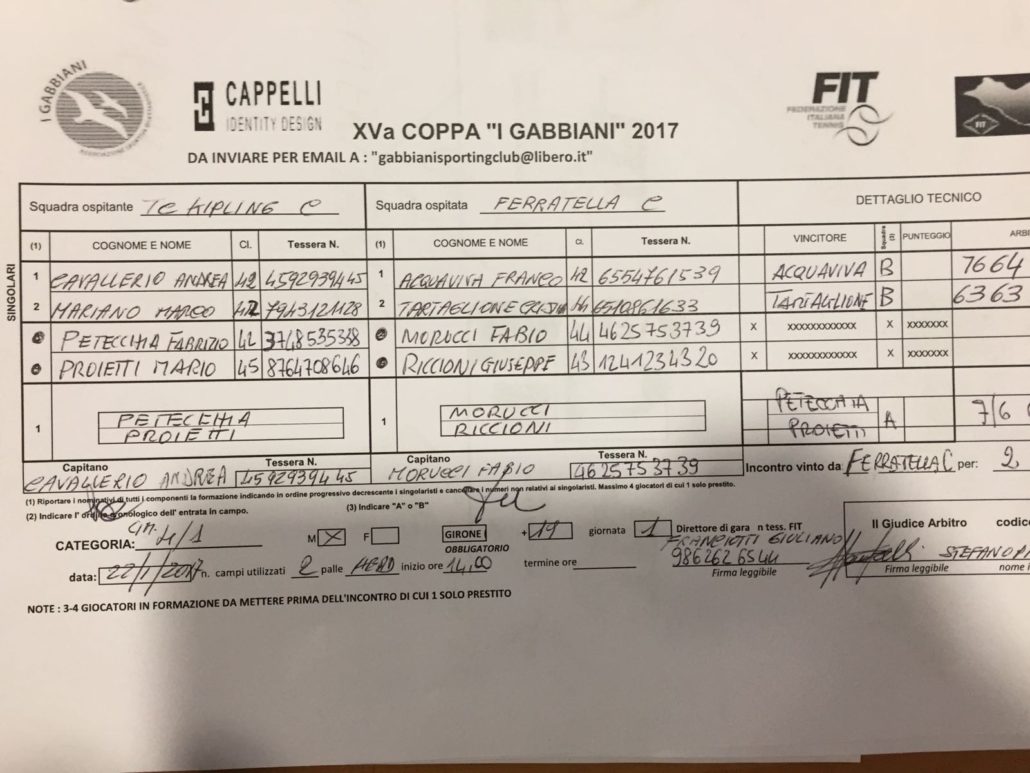 I GABBIANI
CAPPELLI
IDENTITY DESIGN
FIT
FEDERAZIONE
ITALIANA
TENNIS
FIT
XVa COPPA "I GABBIANI" 2017
DA INVIARE PER EMAIL A : "gabbianisportingclub@libero.it"
Squadra ospitante TC KIPLING C Squadra ospitata FERRATELLA C DETTAGLIO TECNICO
(1) COGNOME E NOME Cl. Tessera N. (1) COGNOME E NOME Cl. Tessera N. VINCITORE Squadra (3) PUNTEGGIO ARBI
SINGOLARI
1 CAVALLERIO ANDREA 42 4592939445 1 ACQUAVIVA FRANCO 42 6554761539 ACQUAVIVA B 7664
2 MARIANO MARCO 42 7943121128 2 TARTAGLIONE 44 6510861633 TARTAGLIONE B 6363
PETECCHIA FABRIZIO 42 3748535388 MORUCCI FABIO 44 4625753739 X XXXXXXXXXXXX X XXXXXXX
PROIETTI MARIO 45 8764708646 RICCIONI GIUSEPPE 43 1241234320 X XXXXXXXXXXXX X XXXXXXX
1 PETECCHIA 1 MORUCCI PETECCHIA A 7/6
PROIETTI RICCIONI PROIETTI
Capitano Tessera N. Capitano Tessera N.
CAVALLERIO ANDREA 4592939445 MORUCCI FABIO 4625753739 Incontro vinto da FERRATELLA C per: 2
(1) Riportare i nominativi di tutti i componenti la formazione indicando in ordine progressivo decrescente i singolaristi e cancellare i numeri non relativi ai singolaristi. Massimo 4 giocatori di cui 1 solo prestito.
(2) Indicare l' ordine cronologico dell' entrata in campo. (3) Indicare "A" o "B"
CATEGORIA: LIM. 4/1 M X F GIRONE OBBLIGATORIO +19 giornata 1 Direttore di gara n tess. FIT Il Giudice Arbitro codic
FRANCIOTTI GIULIANO
986262 6544
STEFANO
data: 22/1/2017 n. campi utilizzati 2 palle HEAD inizio ore 14,00 termine ore Firma leggibile Firma leggibile nome i
NOTE : 3-4 GIOCATORI IN FORMAZIONE DA METTERE PRIMA DELL'INCONTRO DI CUI 1 SOLO PRESTITO